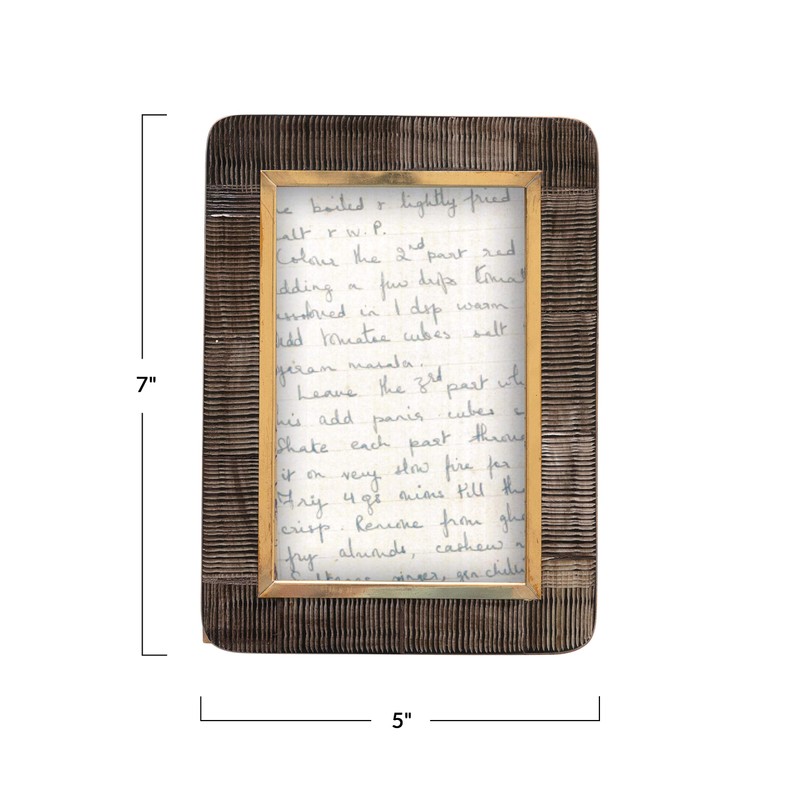 boiled & lightly fried
alt & W.P.
Colour the 2nd part red
dding a few drops tomat
issolved in 1 dsp warm
add tomatoe cubes salt
garam masala.
Leave the 3rd part wh
his add panir cubes &
Shake each part throu
it on very slow fire for
Fry 4 gs onions till th
crisp. Remove from ghe
fry almonds, cashew n
ginger, grn chilli
7"
5"